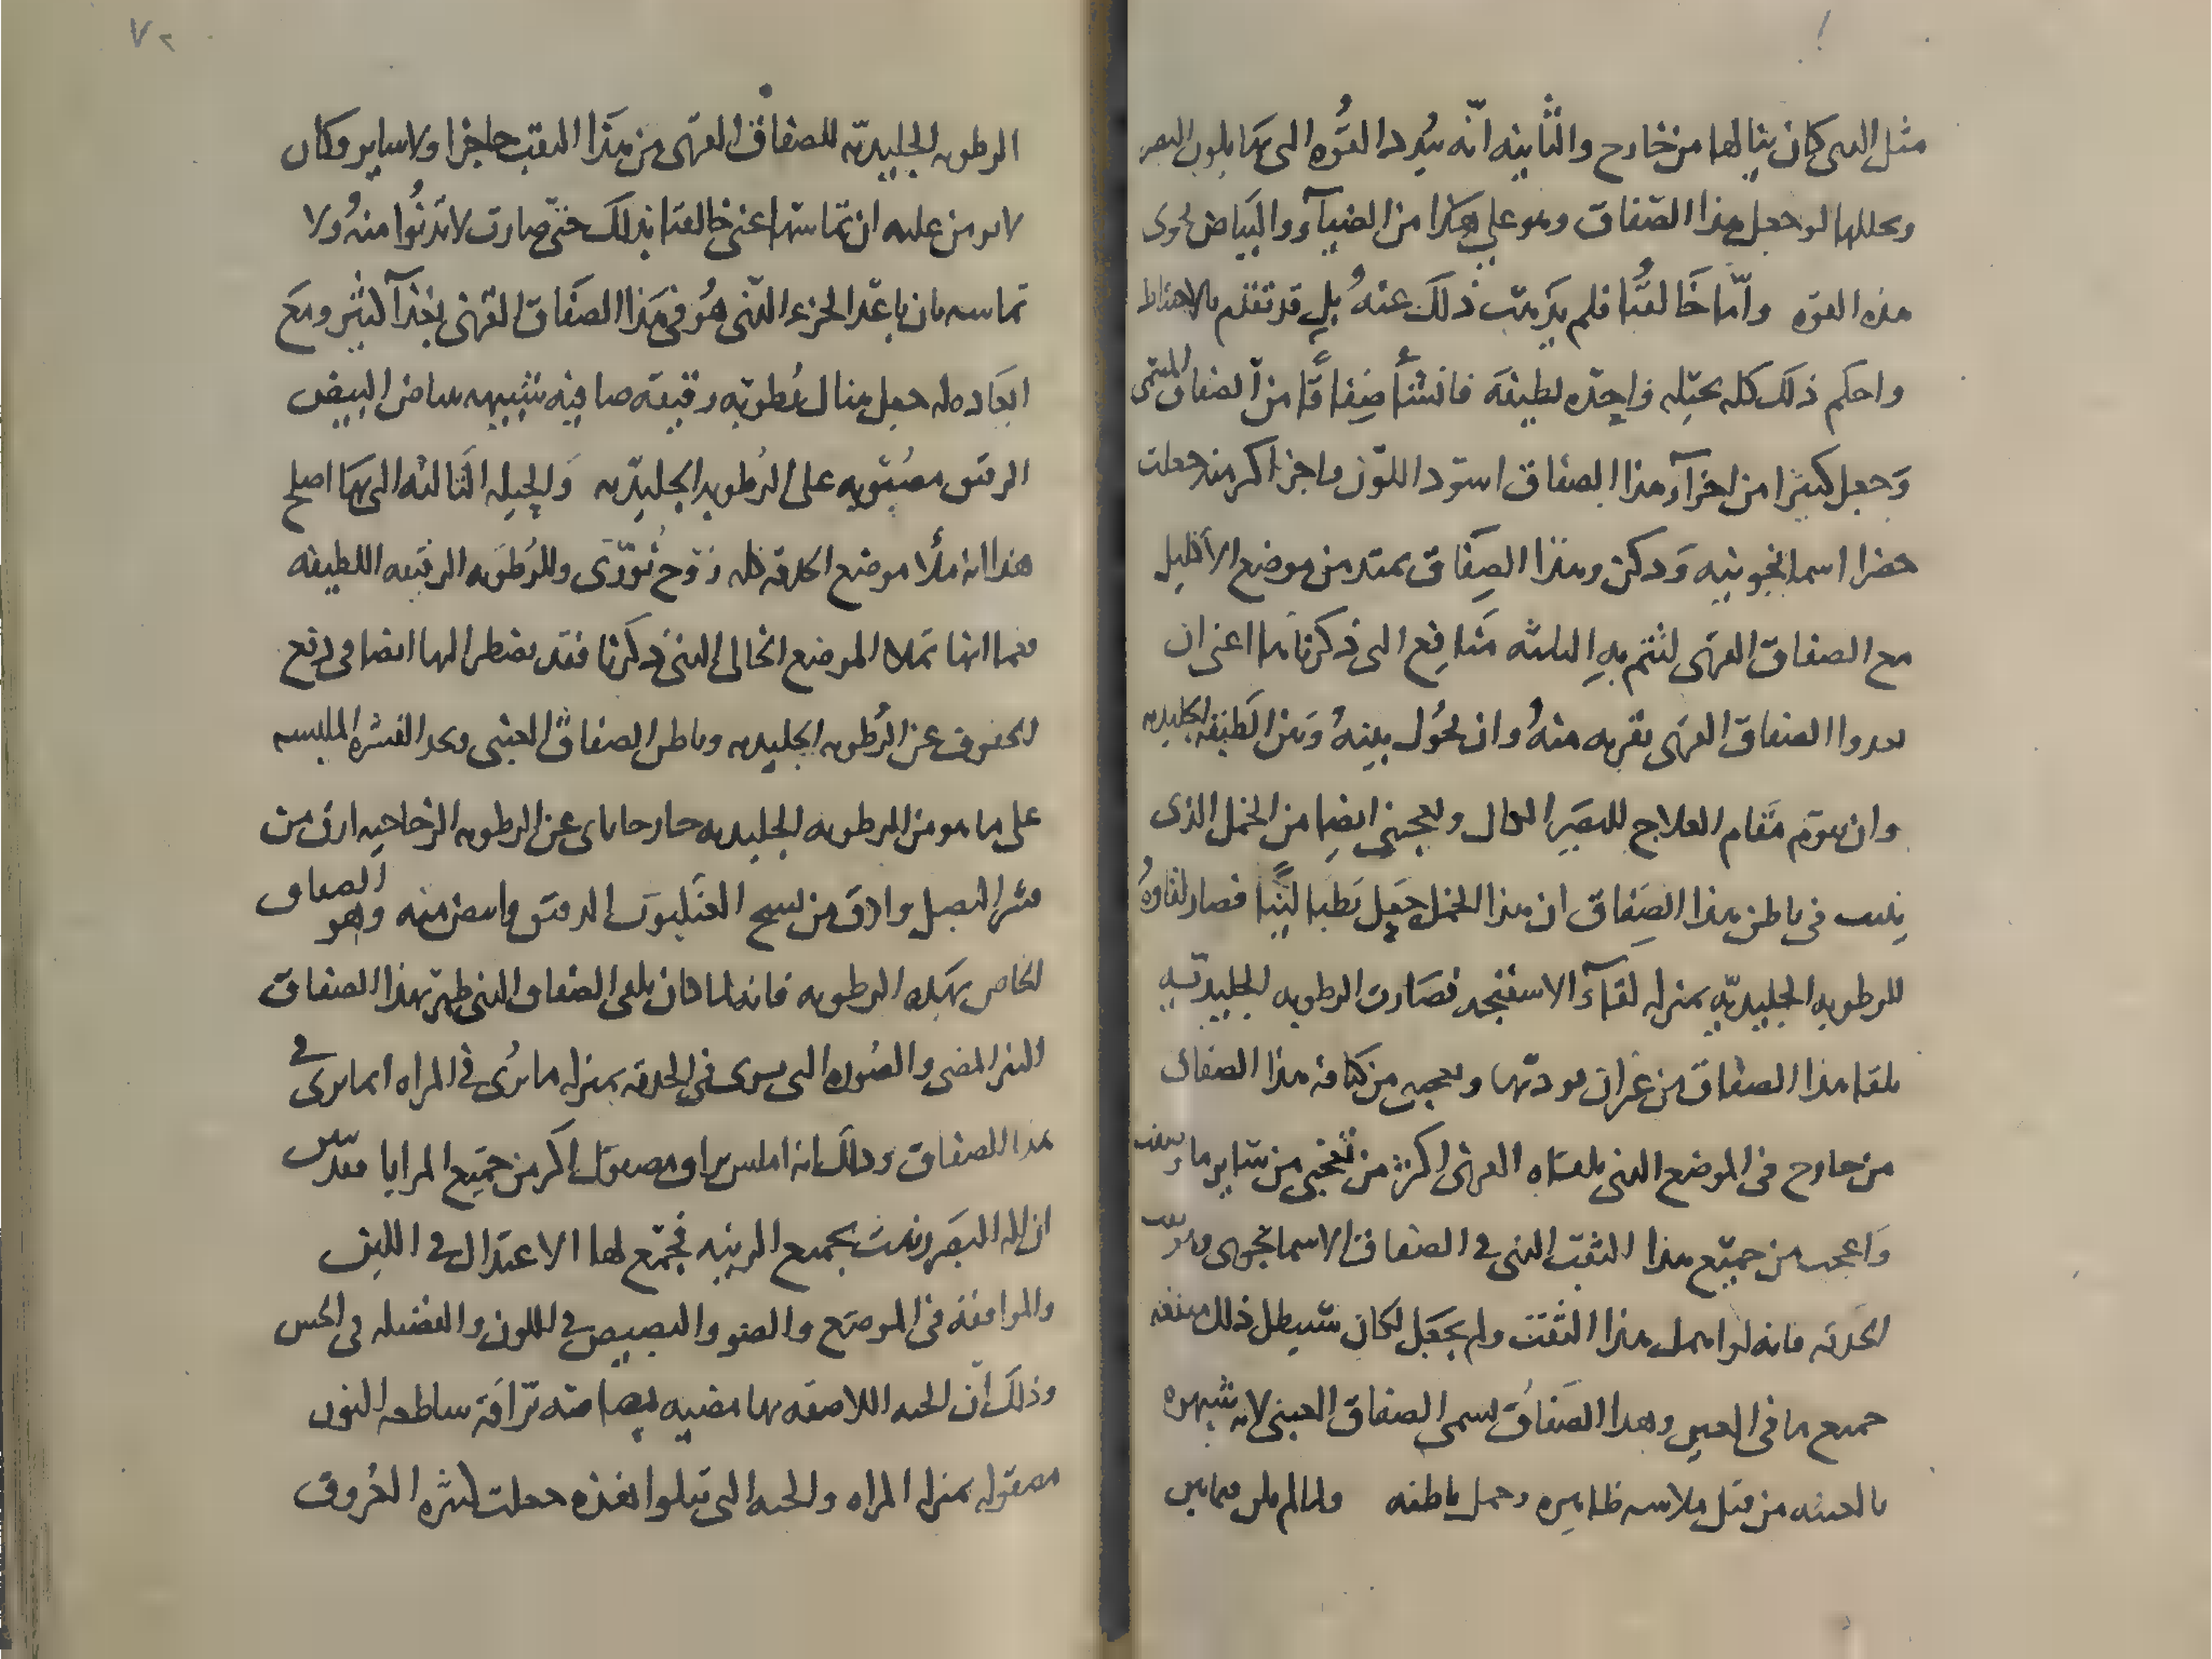 مثل الدى كان ينالها من خارج والثانيه انه يبدد القوه التى بها يكون البصر
ويحللها لو جعل هذا الصفاق وهو على هكذا من الضياء والبياض لحوى
هذه القوه واما خالقنا فلم يذهب ذلك عنه بل قد تقدم بالاحتياط
واحكم ذلك كله بحيله واحده لطيفه فانشأ صفاقا من الصفاق
وجعل كثيرا من اجزاء هذا الصفاق اسود اللون واجزا اكثر منه جعلت
اسمانجونيه ودكن وهذا الصفاق يمتد من موضع الاكليل
مع الصفاق القرنى لتتم به الثلثه منافع التى ذكرناها اعنى ان
الصفاق القرنى بقربه منه وان يحول بينه وبين اللطيفه الجليديه
وان يقوم مقام العلاج للبصر الكال ويعجبنى ايضا من الخمل الذى
فى باطن هذا الصفاق ان هذا الخمل جعل رطبا لينا فصار لقاوه
للرطوبه الجليديه بمنزله لقاء الاسفنجه فصارت الرطوبه الجليديه
تلقا هذا الصفاق من غير ان يوديها ويعجبنى من كثافة هذا الصفاق
من خارج فى الموضع الذى يلقاه القرنى اكثر من تعجبى من ساير ما
واعجب من جميع هذا الثقب الذى فى الصفاق الاسمانجونى وهو ثقب
الحدقه فانه لو اهمل هذا الثقب ولم يجعل لكان سيبطل ذلك منفعه
جميع ما فى العين وهذا الصفاق يسمى الصفاق العنبى لانه شبهوه
بالعنبه من قبل ملاسه ظاهره وخمل باطنه ولما لم يكن فيما بين
الرطوبه الجليديه للصفاق القرنى من هذا الثقب حاجزا ولا ساير وكان
لا يومن عليه ان تماسها اعنى خالقنا بذلك حتى صارت لا تدنوا منه ولا
تماسه بان باعد الجزء الذى هو فى هذا الصفاق القرنى بعدا كثير ومع
ابعاده له جعل هناك رطوبه رقيقه صافيه شبيهه ببياض البيض
الرقيق مصبوبه على الرطوبه الجليديه والحيله الثالثه التى بها اصلح
هذا انه ملا موضع الحدقه كله روح نورى وللرطوبه الرقيقه اللطيفه
فما انها تملا الموضع الخالى الذى ذكرنا فقد يضطر اليها ايضا فى دفع
الجفوف عن الرطوبه الجليديه وباطن الصفاق العنبى وتجد القشره الملبسه
على ما هو من الرطوبه الجليديه خارجا باى عن الرطوبه الزجاجيه ارق من
قشر البصل وارق من نسج العنكبوت الدقيق وابيض منه وهو الصفاق
الخاص بهذه الرطوبه فانه لما كان يلقى الصفاق الذى ظهر بهذا الصفاق
النير المضى والصوره التى ترى فى الحدقه بمنزله ما يرى فى المراه انما يرى فى
هذا الصفاق وذلك انه املس براق مصقول اكثر من جميع المرايا فقد تبين
ان اله البصر زينت بجميع الزينه فجمع لها الاعتدال فى اللين
والموافقه فى الموضع والضو والبصيص فى اللون والفضيله فى الحس
وذلك ان الجبه اللاصقه بها مضيه براقه ساطعه النور
مصقوله بمنزله المراه والجبه التى تتلوا هذه جعلت كثيره العروق